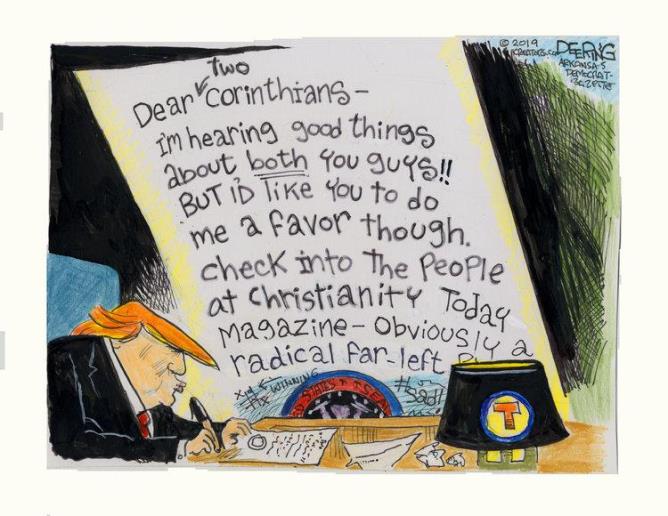 © 2019
CREATORS.COM
DEERING
ARKANSAS
DEMOCRAT-
GAZETTE
two
Dear Corinthians-
i'm hearing good things
about both you guys!!
BUT i'D like you to do
me a favor though.
check into the People
at christianity Today
Magazine- Obviously a
radical far-left
WINNING
STATES
#Sad!!
T